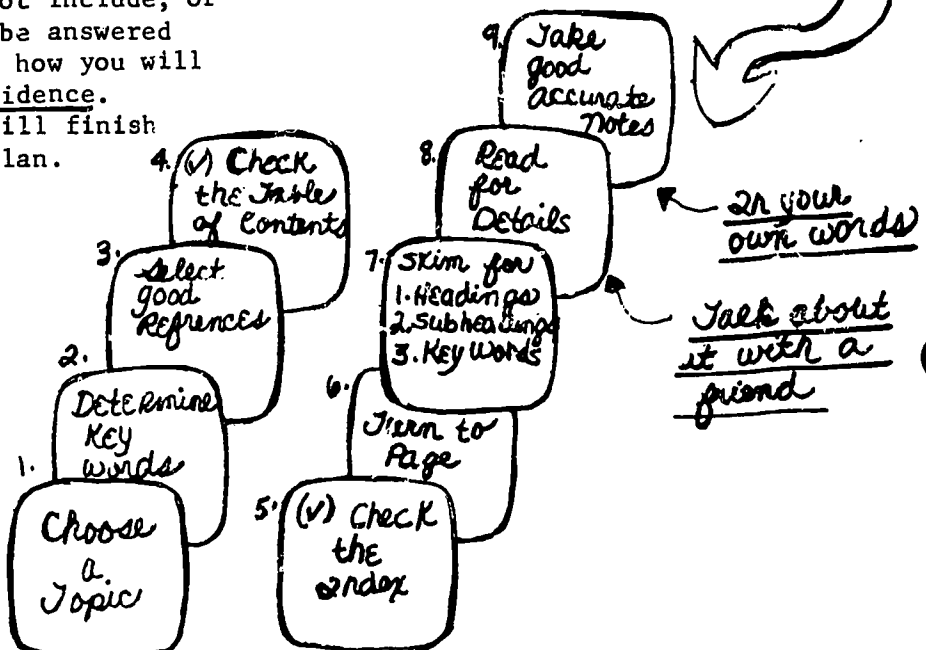 ot include, or
be answered
how you will
idence.
ill finish
lan.
1.
Choose
a
Topic
2.
Determine
Key
words
3.
Select
good
Refrences
4. (✓) Check
the Table
of Contents
5. (✓) Check
the
Index
6.
Turn to
Page
7. Skim for
1. Headings
2. Subheadings
3. Key Words
8. Read
for
Details
9. Take
good
accurate
notes
In your
own words
Talk about
it with a
friend